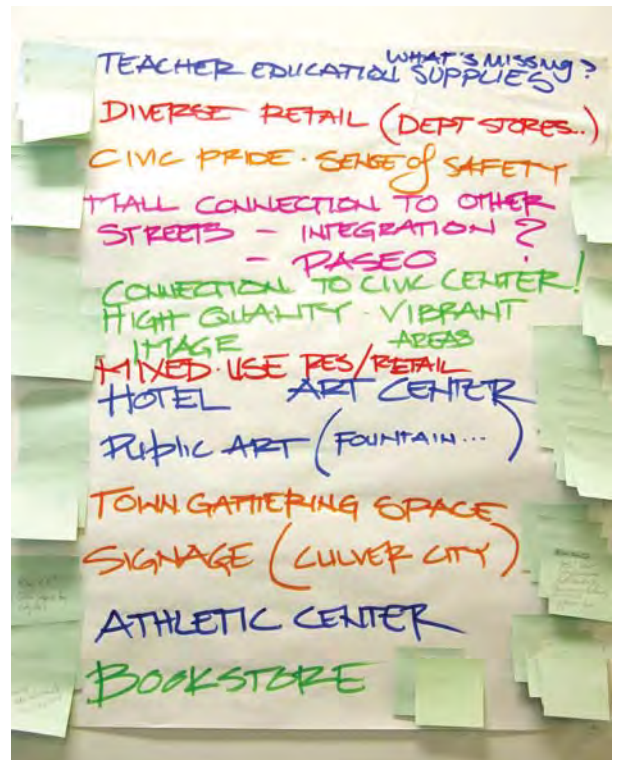 WHAT'S MISSING?
TEACHER EDUCATION SUPPLIES
DIVERSE RETAIL (DEPT STORES..)
CIVIC PRIDE · SENSE of SAFETY
MALL CONNECTION TO OTHER
STREETS - INTEGRATION ?
- PASEO !
CONNECTION TO CIVIC CENTER!
HIGH QUALITY · VIBRANT
IMAGE AREAS
MIXED·USE RES/RETAIL
HOTEL ART CENTER
Public ART (FOUNTAIN...)
TOWN GATHERING SPACE
SIGNAGE (CULVER CITY)
ATHLETIC CENTER
BOOKSTORE